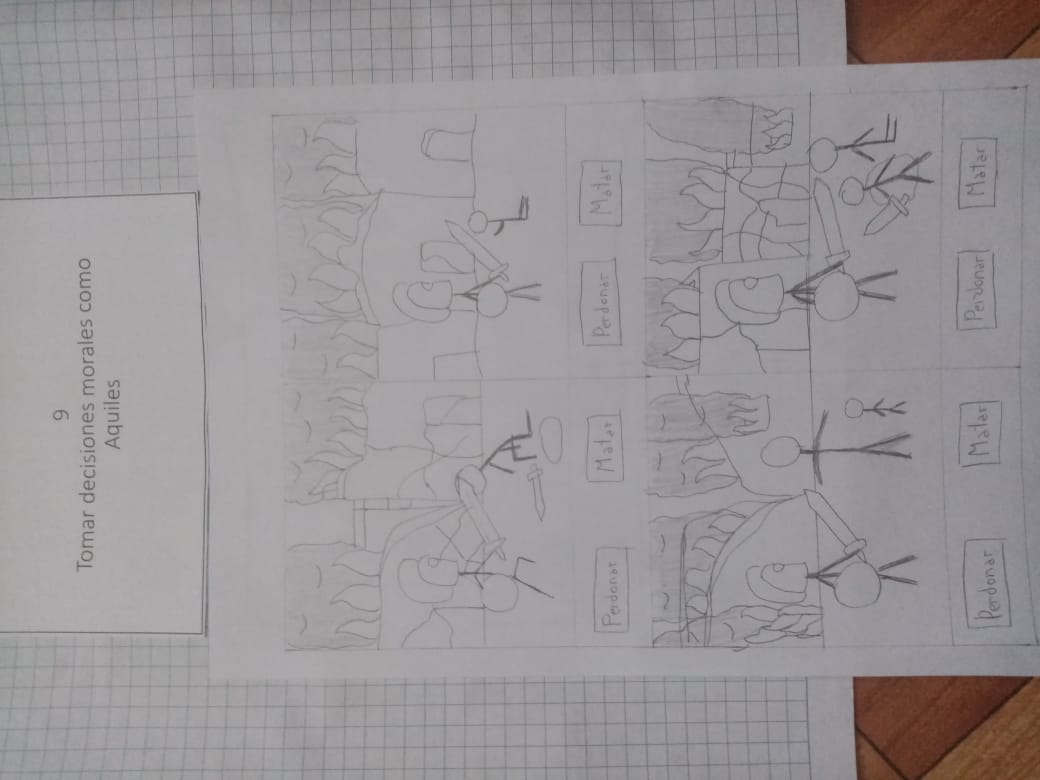 9
Tomar decisiones morales como
Aquiles
Perdonar
Matar
Perdonar
Matar
Perdonar
Matar
Perdonar
Matar